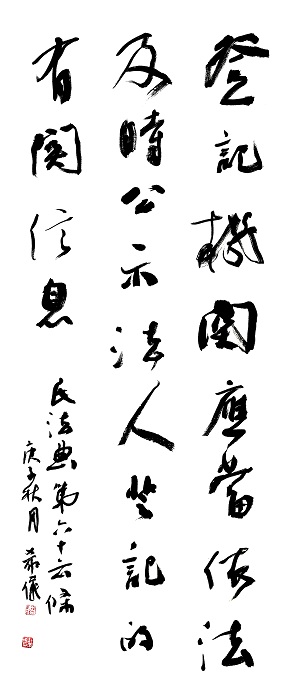 登記機關應當依法
及時公示法人登記的
有関信息
民法典第六十六條
庚子秋月 希儀